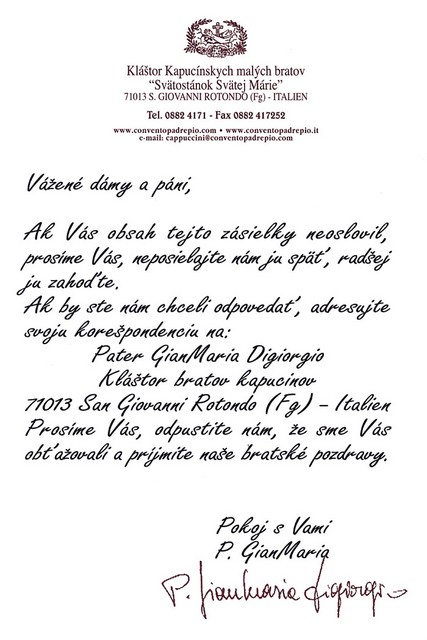 Kláštor Kapucínskych malých bratov
"Svätostánok Svätej Márie"
71013 S. GIOVANNI ROTONDO (Fg) - ITALIEN
Tel. 0882 4171 - Fax 0882 417252
www.conventopadrepio.com • www.conventopadrepio.it
e-mail: cappuccini@conventopadrepio.com
Vážené dámy a páni,
Ak Vás obsah tejto zásielky neoslovil,
prosíme Vás, neposielajte nám ju späť, radšej
ju zahoďte.
Ak by ste nám chceli odpovedať, adresujte
svoju korešpondenciu na:
Pater GianMaria Digiorgio
Kláštor bratov kapucinov
71013 San Giovanni Rotondo (Fg) – Italien
Prosíme Vás, odpustite nám, že sme Vás
obťažovali a príjmite naše bratské pozdravy.
Pokoj s Vami
P. GianMaria
P. GianMaria Digiorgio